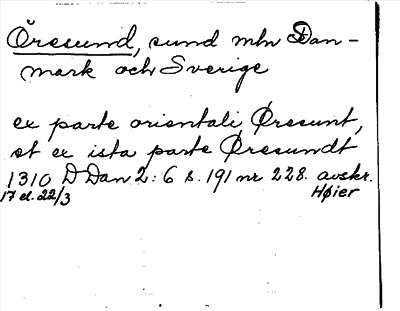 Öresund, sund mln Dan-
mark och Sverige
ex parte orientali Øresunt,
et ex ista parte Øresundt
1310 D Dan 2:6 s. 191 nr 228. avskr.
17 el. 22/3 Høier